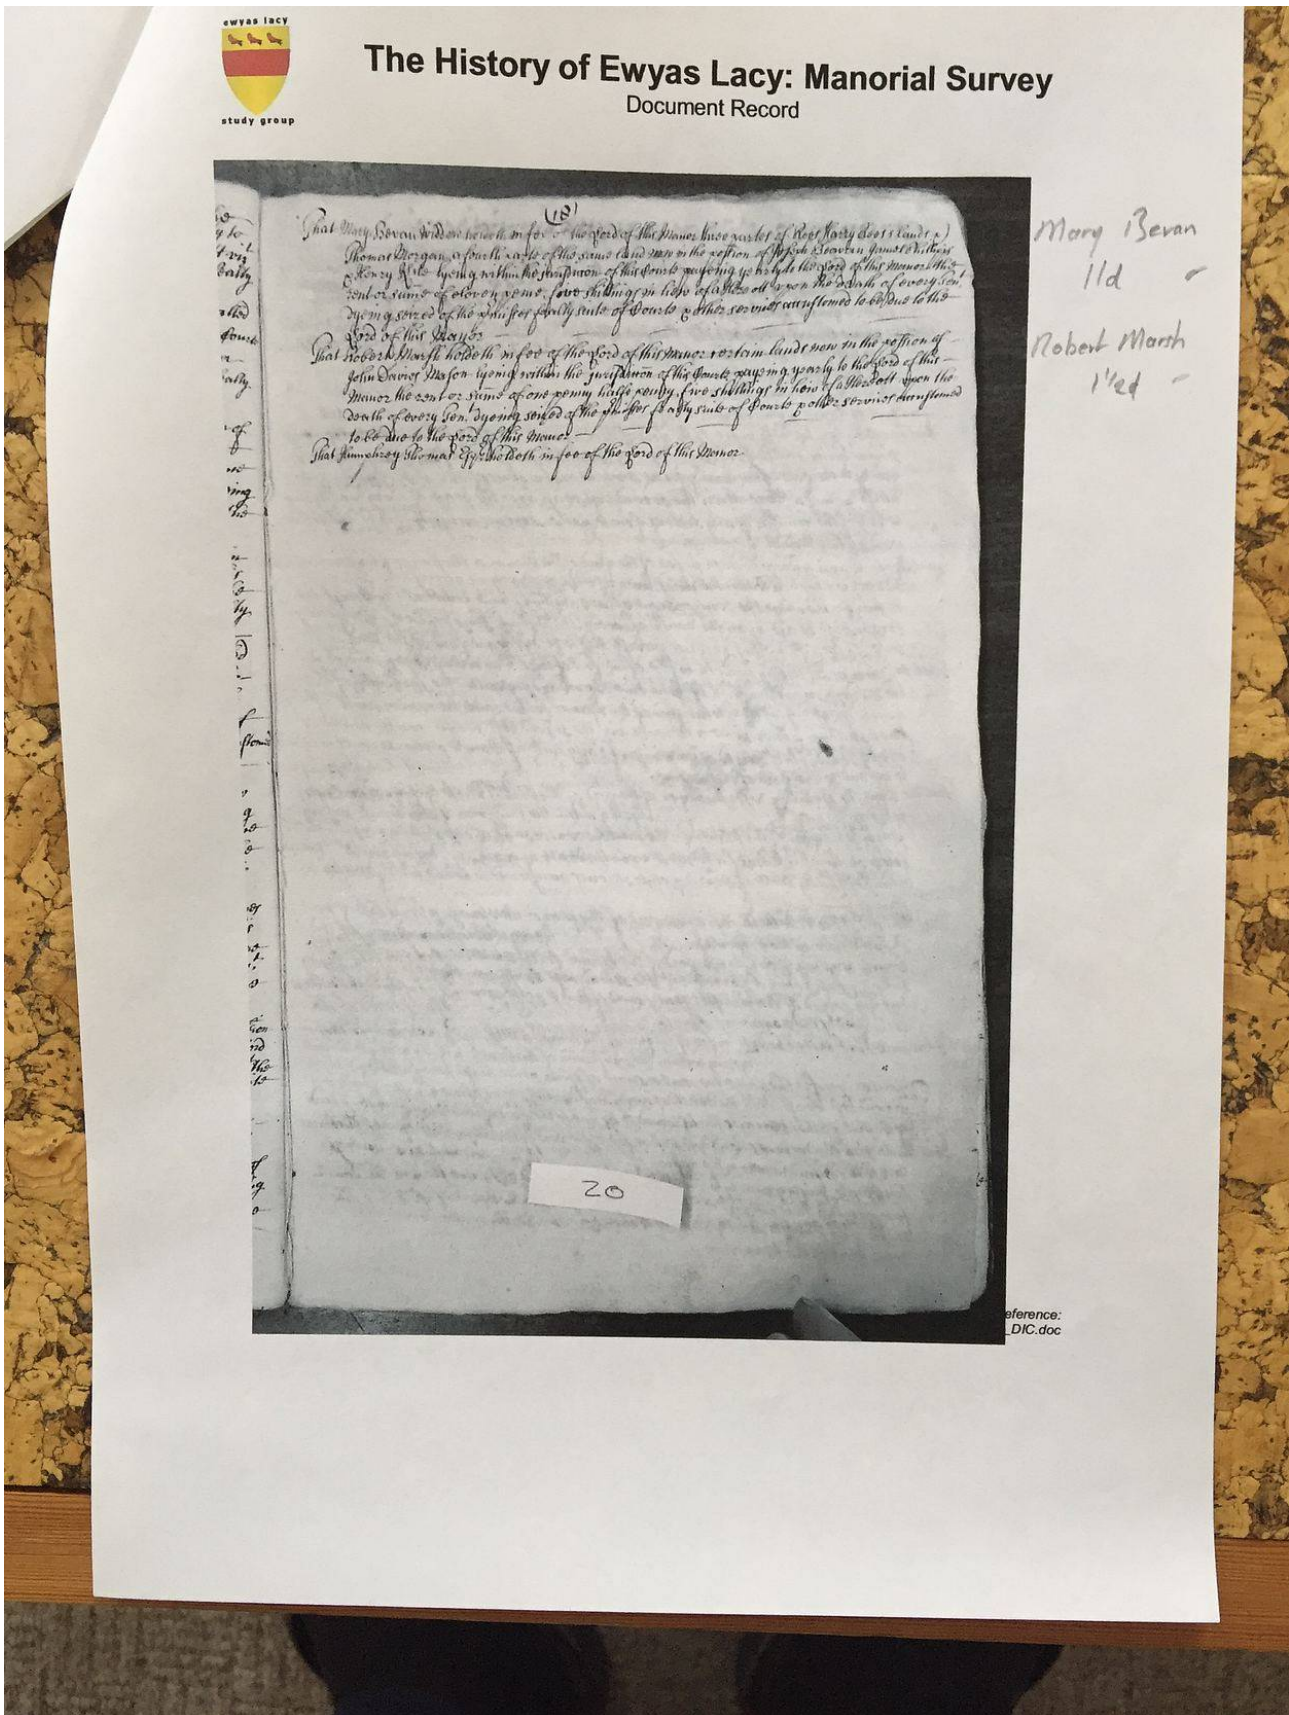 ewyas lacy
study group
The History of Ewyas Lacy: Manorial Survey
Document Record
(18)
That Mary Bevan Widdow holdeth in fee of the Lord of this Manor three partes of Rees Harry Rees's lands
Thomas Morgan a fourth parte of the same land now in the possion of Joseph Beavan James
Henry lyeing within the jurisdiccon of this Courte payeing yearly to the Lord of this Manor the
rent or sume of eleven pence, five shillings in liew of a Hereott upon the death of every Ten.t
dyeing seized of the p'misses fealty suite of Courte & other services accustomed to be due to the
Lord of this Manor
That Robert Marsh holdeth in fee of the Lord of this Manor certain lands now in the possion of
John Davies Mason lyeing within the jurisdiccon of this Courte payeing yearly to the Lord of this
Manor the rent or sume of one penny halfe penny, five shillings in liew of a Hereott upon the
death of every Ten.t dyeing seized of the p'misses fealty suite of Courte & other services accustomed
to be due to the Lord of this Manor
That Humphrey Thomas Esqr. holdeth in fee of the Lord of this Manor
Mary Bevan
11d
Robert Marsh
1½d
20
eference:
_DIC.doc